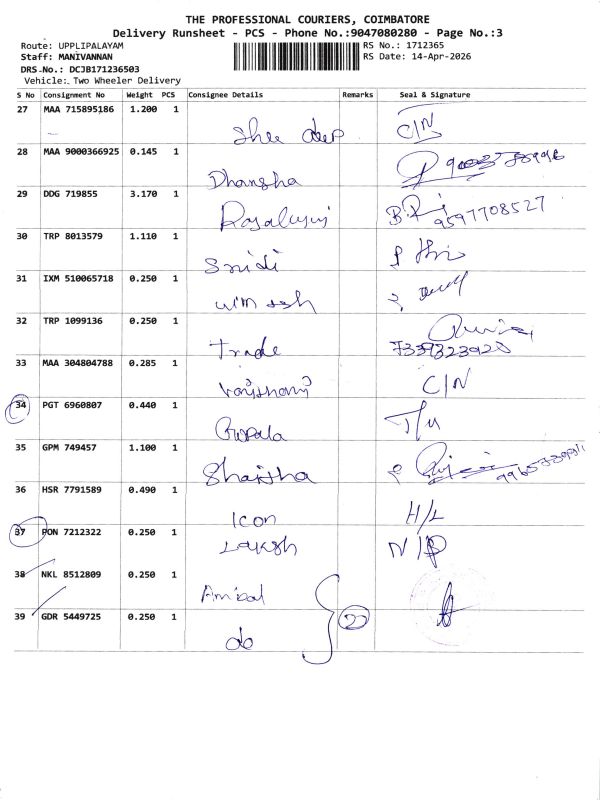 THE PROFESSIONAL COURIERS, COIMBATORE
Delivery Runsheet - PCS - Phone No.:9047080280 - Page No.:3
Route: UPPLIPALAYAM RS No.: 1712365
Staff: MANIVANNAN RS Date: 14-Apr-2026
DRS-No.: DCJB171236503
Vehicle: Two Wheeler Delivery
S No Consignment No Weight PCS Consignee Details Remarks Seal & Signature
27 MAA 715895186 1.200 1
Shree deep C/N
28 MAA 9000366925 0.145 1
Dhansha
29 DDG 719855 3.170 1
9597708527
30 TRP 8013579 1.110 1
Snidi
31 IXM 510065718 0.250 1
32 TRP 1099136 0.250 1
Trade 7339323920
33 MAA 304804788 0.285 1
C/N
34 PGT 6960807 0.440 1
35 GPM 749457 1.100 1
36 HSR 7791589 0.490 1
Icon H/L
37 PON 7212322 0.250 1
Laksh
38 NKL 8512809 0.250 1
39 GDR 5449725 0.250 1
do